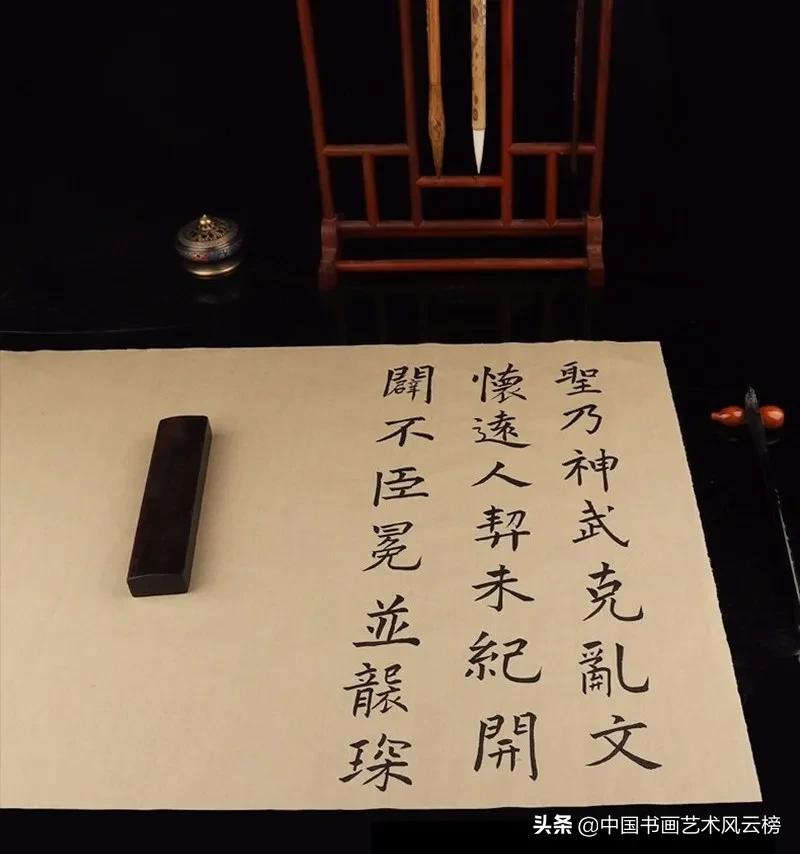 聖乃神武克亂文
懷遠人契未紀開
闢不臣冕並襲琛
头条 @中国书画艺术风云榜